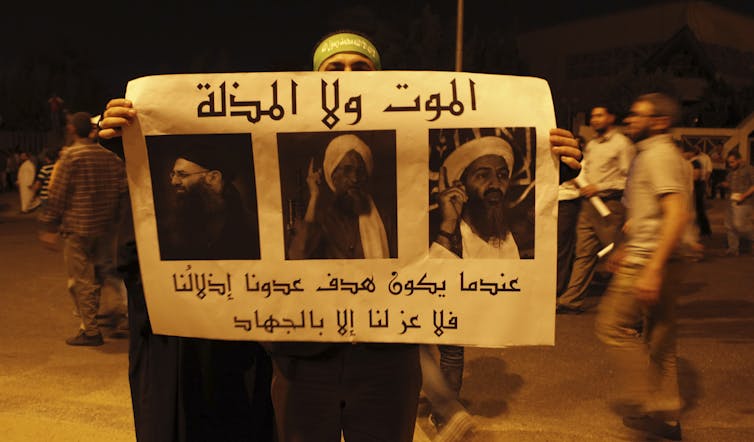 الموت ولا المذلة
عندما يكون هدف عدونا إذلالُنا
فلا عز لنا إلا بالجهاد